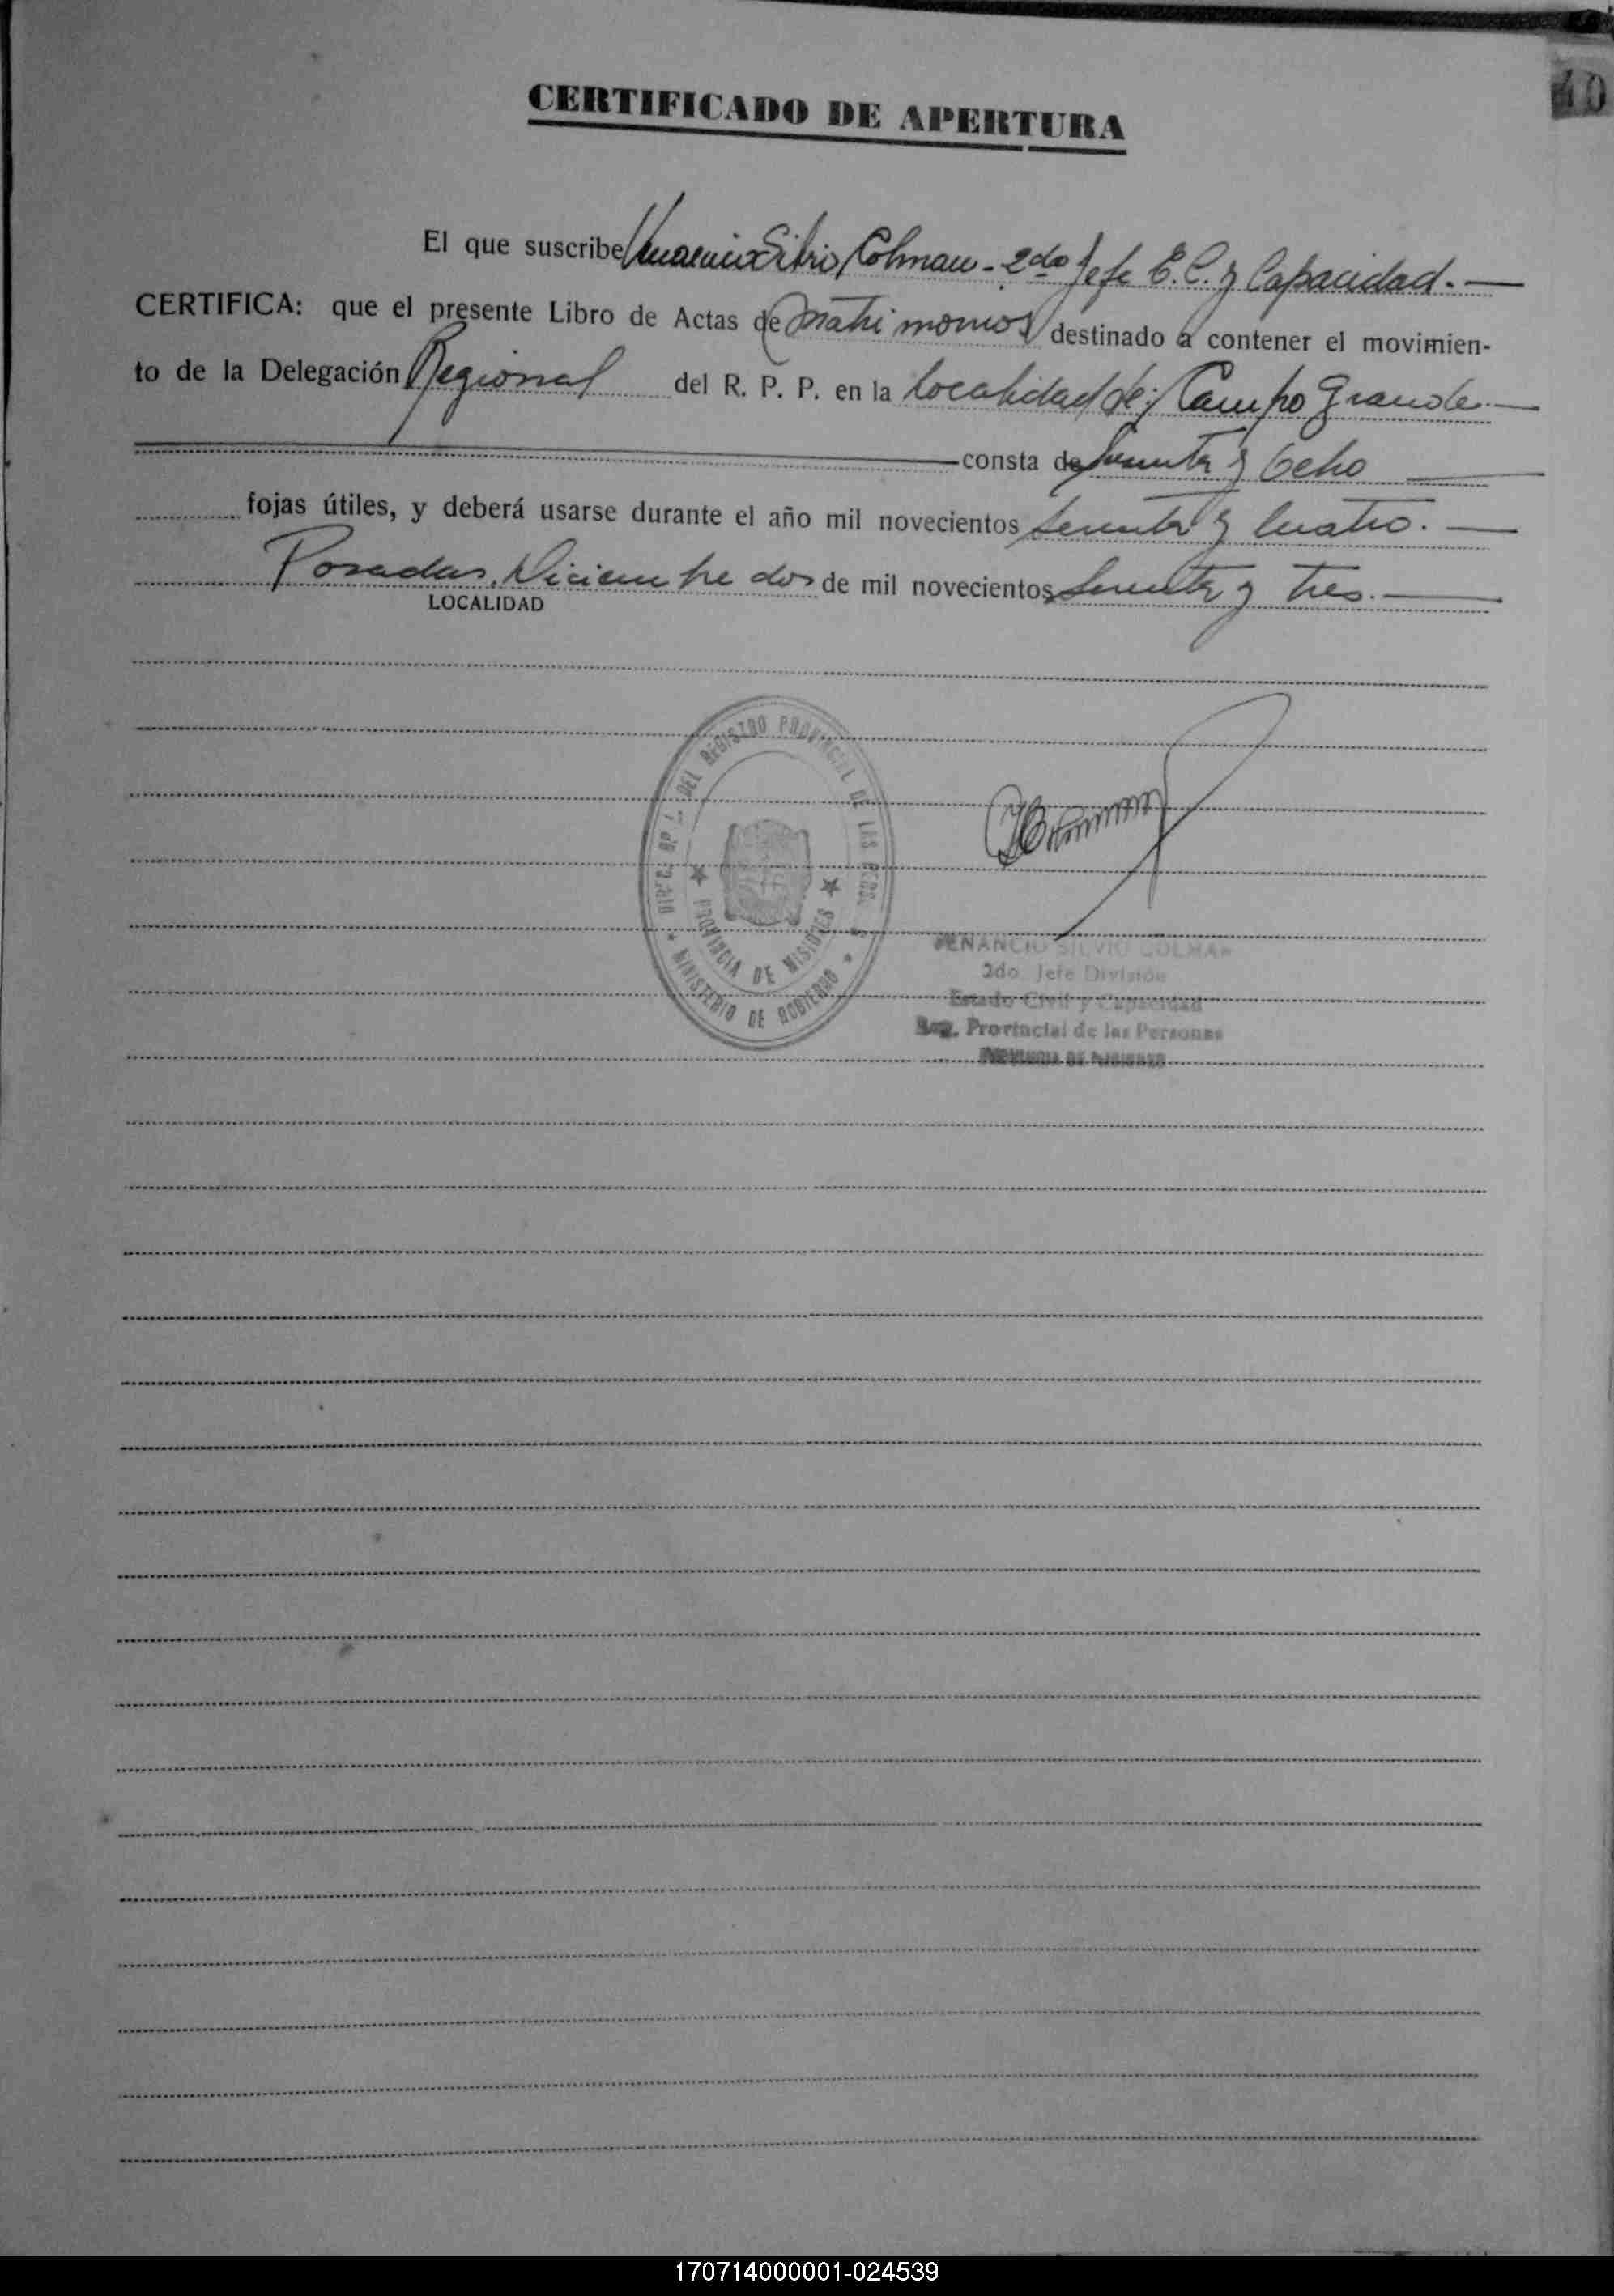 40
CERTIFICADO DE APERTURA
El que suscribe Venancio Silvio Colman - 2do Jefe E. C. y Capacidad. —
CERTIFICA: que el presente Libro de Actas de Matrimonios destinado a contener el movimien-
to de la Delegación Regional del R. P. P. en la Localidad de: Campo Grande —
consta de y Ocho
fojas útiles, y deberá usarse durante el año mil novecientos setenta y cuatro. —
Posadas, Diciembre dos de mil novecientos setenta y tres. —
LOCALIDAD
DEL REGISTRO PROVINCIAL DE LAS PERS.
MINISTERIO DE GOBIERNO
PROVINCIA DE MISIONES
VENANCIO SILVIO COLMAN
2do. Jefe División
Estado Civil y Capacidad
Reg. Provincial de las Personas
PROVINCIA DE MISIONES
170714000001-024539